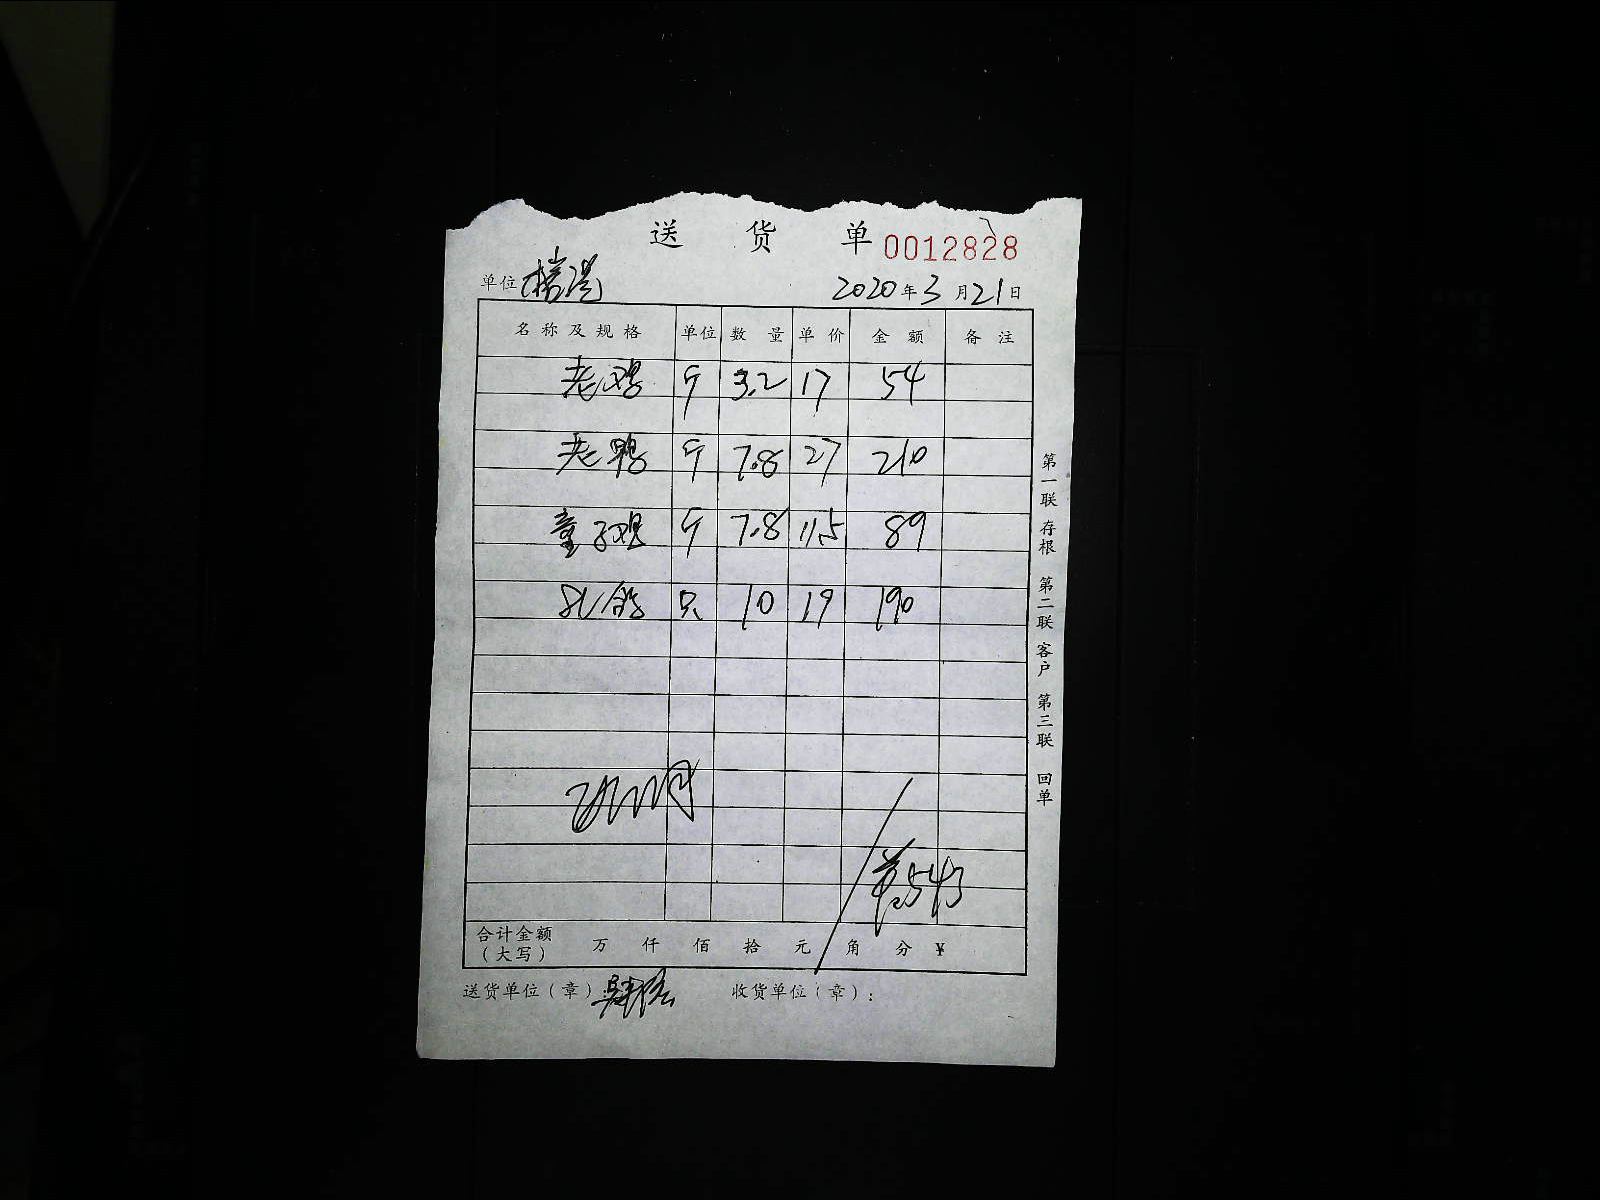 送 货 单 0012828
单位 2020年3月21日
名称及规格 单位 数量 单价 金额 备注
老鸡 斤 3.2 17 54
老鸭 斤 7.8 27 210
童子鸡 斤 7.8 11.5 89
乳鸽 只 10 19 190
543
合计金额（大写） 万 仟 佰 拾 元 角 分 ¥
送货单位（章）： 收货单位（章）：
第一联 存根 第二联 客户 第三联 回单